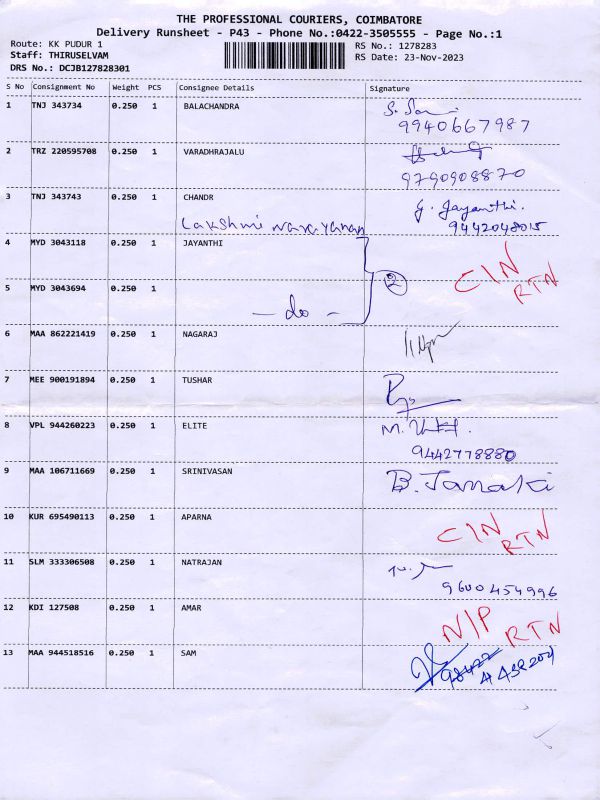 THE PROFESSIONAL COURIERS, COIMBATORE
Delivery Runsheet - P43 - Phone No.:0422-3505555 - Page No.:1
Route: KK PUDUR 1 RS No.: 1278283
Staff: THIRUSELVAM RS Date: 23-Nov-2023
DRS No.: DCJB127828301
S No Consignment No Weight PCS Consignee Details Signature
1 TNJ 343734 0.250 1 BALACHANDRA
9940667987
2 TRZ 220595708 0.250 1 VARADHRAJALU
9790908870
3 TNJ 343743 0.250 1 CHANDR G. Jayanthi.
Lakshmi narayanan 9442048015
4 MYD 3043118 0.250 1 JAYANTHI
2 CIN RTN
5 MYD 3043694 0.250 1
- do -
6 MAA 862221419 0.250 1 NAGARAJ
7 MEE 900191894 0.250 1 TUSHAR
8 VPL 944260223 0.250 1 ELITE
9442778880
9 MAA 106711669 0.250 1 SRINIVASAN B. Janaki
10 KUR 695490113 0.250 1 APARNA CIN RTN
11 SLM 333306508 0.250 1 NATRJAN
9600454996
12 KDI 127508 0.250 1 AMAR N/P RTN
13 MAA 944518516 0.250 1 SAM